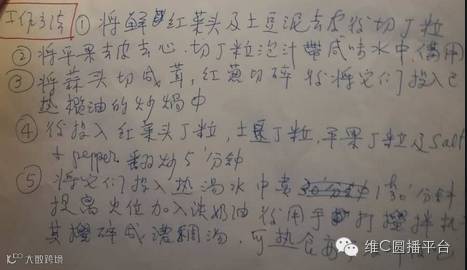 工作方法 ① 将鲜红菜头及土豆泥去皮后切丁粒
② 将苹果去皮去心.切丁粒泡汁带咸味水中,备用
③ 将蒜头切成茸,红葱切碎 后将它们投入已
热榄油的炒煱中
④ 后投入红菜头丁粒,土豆丁粒,苹果丁粒及Salt
+ pepper 翻炒5分钟
⑤ 将它们投入热汤水中煮 1小30分钟
提离火位加入淡奶油后用手打搅拌机
其搅碎成浓稠汤,可热食
大数跨境
维C圆播平台